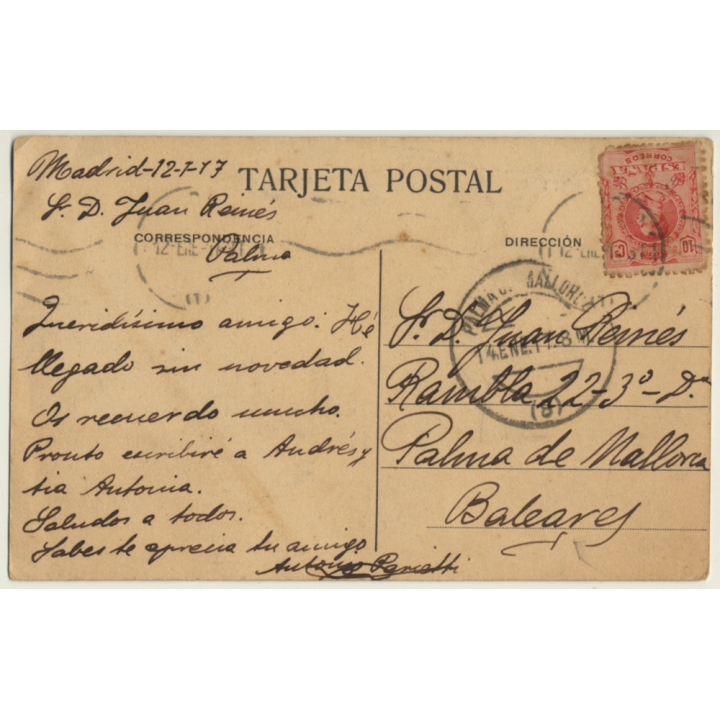 Madrid-12-1-17
TARJETA POSTAL
S. D. Juan Reinés
CORRESPONDENCIA
Palma
Queridísimo amigo: Hé
llegado sin novedad.
Os recuerdo mucho.
Pronto escribiré a Andrés y
tia Antonia.
Saludos a todos.
Sabes te aprecia tu amigo
Antonio Parietti
DIRECCIÓN
Sr. D. Juan Reinés
Rambla 22-3º-Dª
Palma de Mallorca
Baleares
CORREOS
ESPAÑA
10
PALMA MALLORCA
14 ENE. 17. 8
(8)
12 ENE
(1)
12